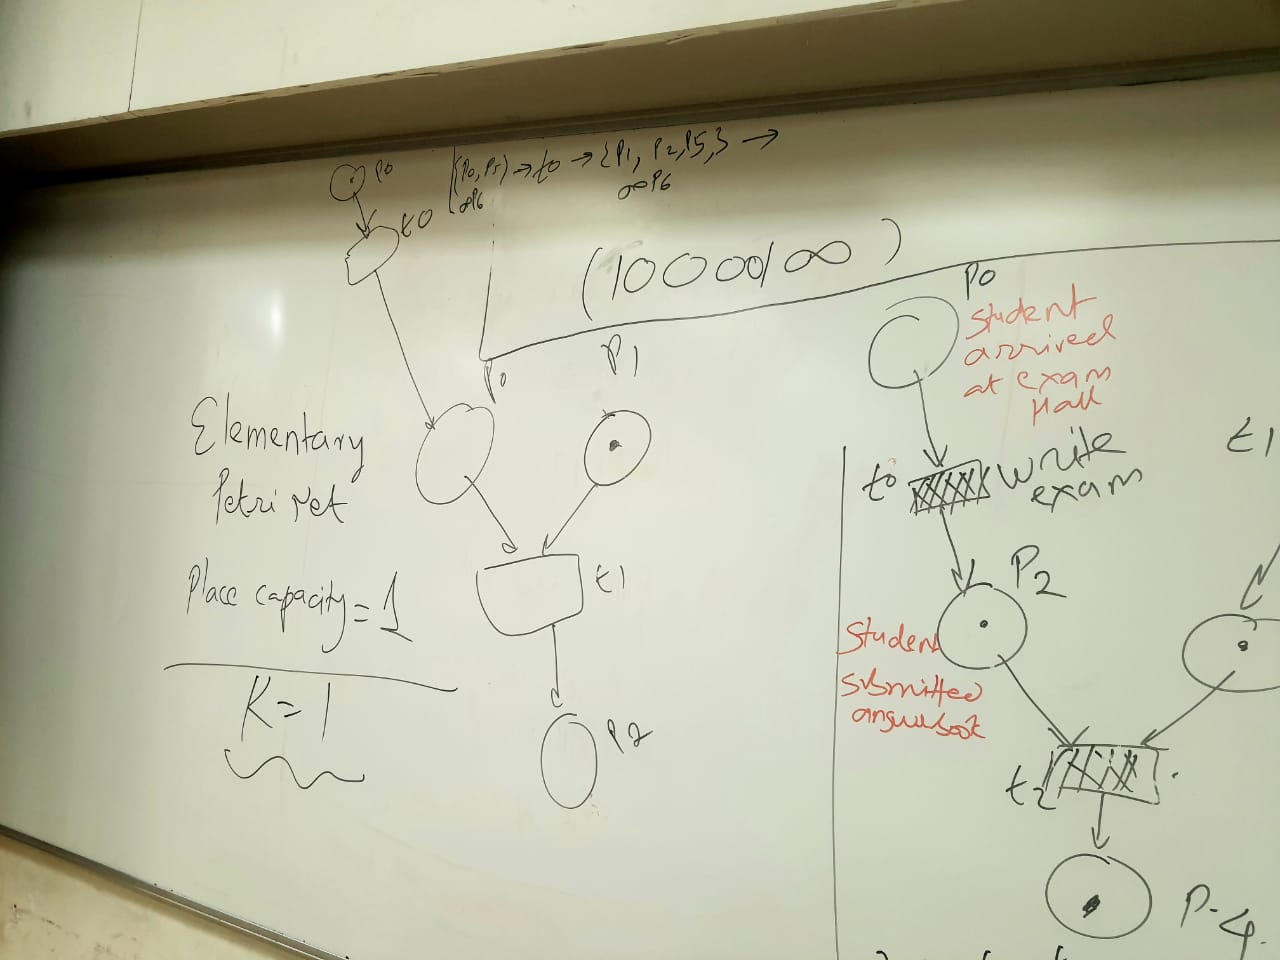 P0
(P0, P5) → t0 → {P1, P2, P5, } →
∞P6
∞P6
t0
(10000100)
P0
P1
Elementary
Petri Net
Place capacity = 1
K = 1
t1
P2
P0
Student
arrived
at exam
Hall
t0
write
exam
t1
P2
Student
submitted
t2
P4